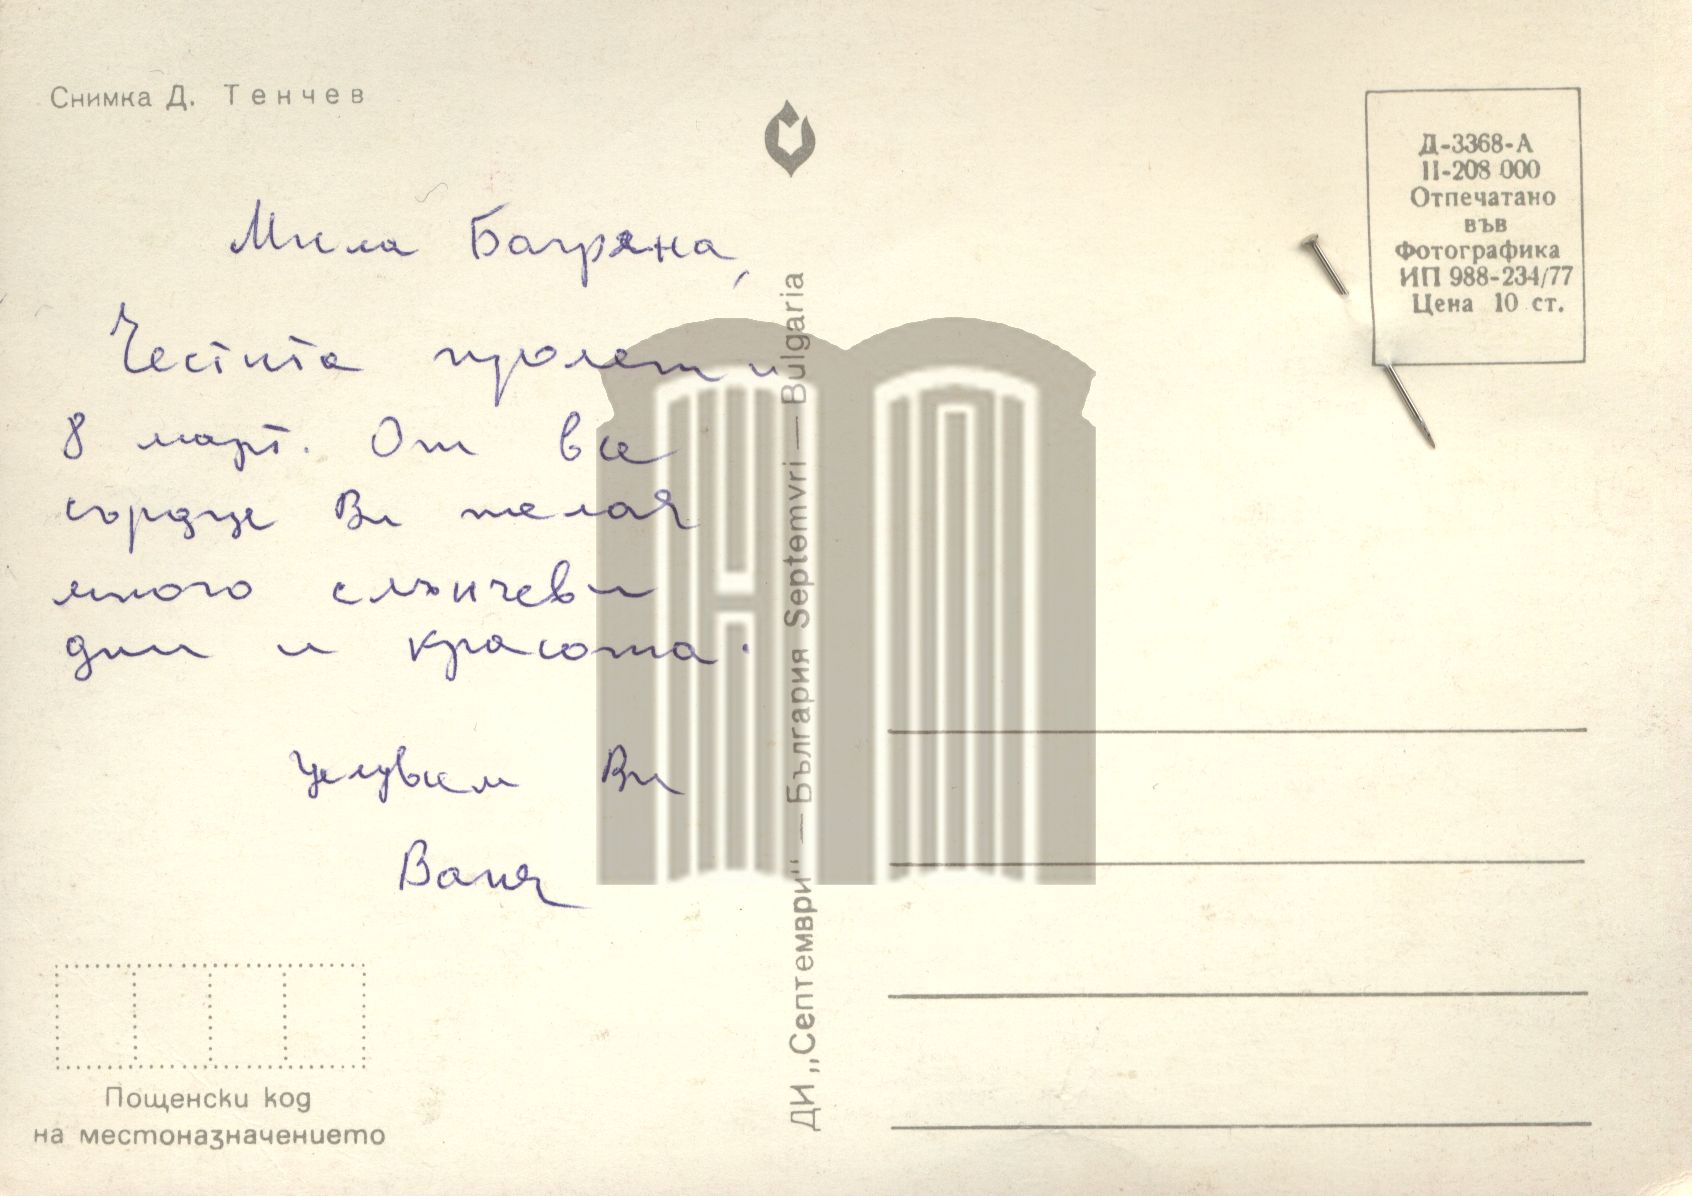 Снимка Д. Тенчев
Мила Багряна,
Честита пролет и
8 март. От все
сърдце Ви желая
много слънчеви
дни и красота.
Целувам Ви
Ваня
Пощенски код
на местоназначението
ДИ „Септември“ — България Septemvri — Bulgaria
Д-3368-А
II-208 000
Отпечатано
във
Фотографика
ИП 988-234/77
Цена 10 ст.